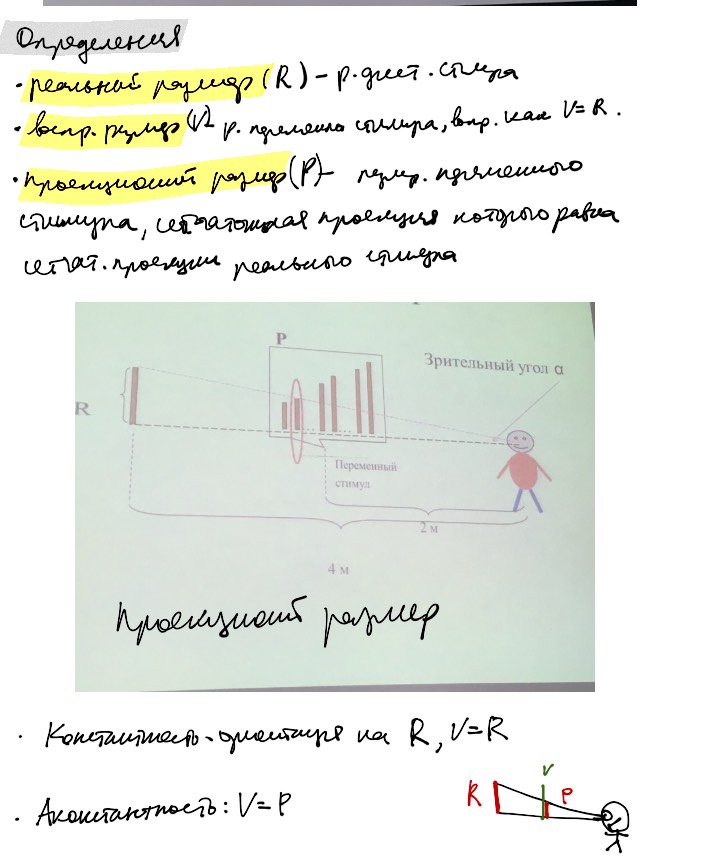 Определения
• реальный размер (R) – р. дист. стимула
• воспр. размер (V) – р. переменного стимула, воспр. как V=R.
• проекционный размер (P) – размер. переменного
стимула, сетчаточная проекция которого равна
сетчат. проекции реального стимула
P
Зрительный угол α
R
Переменный
стимул
2 м
4 м
Проекционный размер
• Константность – ориентация на R, V=R
V
R
P
• Аконстантность: V=P